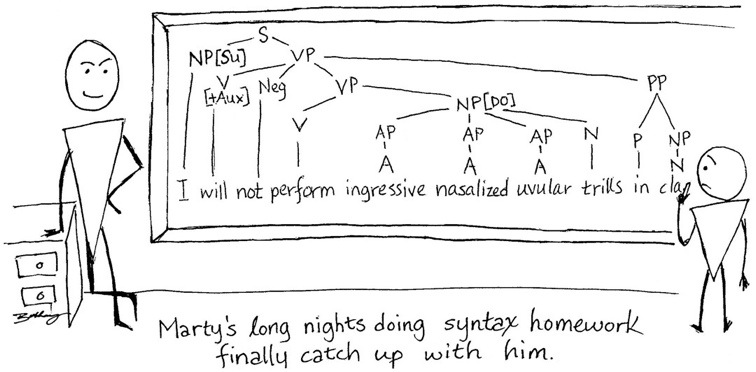 S
NP[Su] VP
V [+Aux] Neg VP PP
NP[DO]
V AP AP AP N P NP
A A A N
I will not perform ingressive nasalized uvular trills in clas
Marty's long nights doing syntax homework
finally catch up with him.